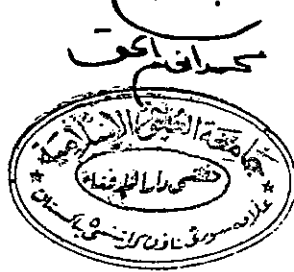 محمد انعام الحق
جامعة العلوم الإسلامية
مفتی دارالافتاء
علامه بنوری تاون کراتشی ٥ باکستان